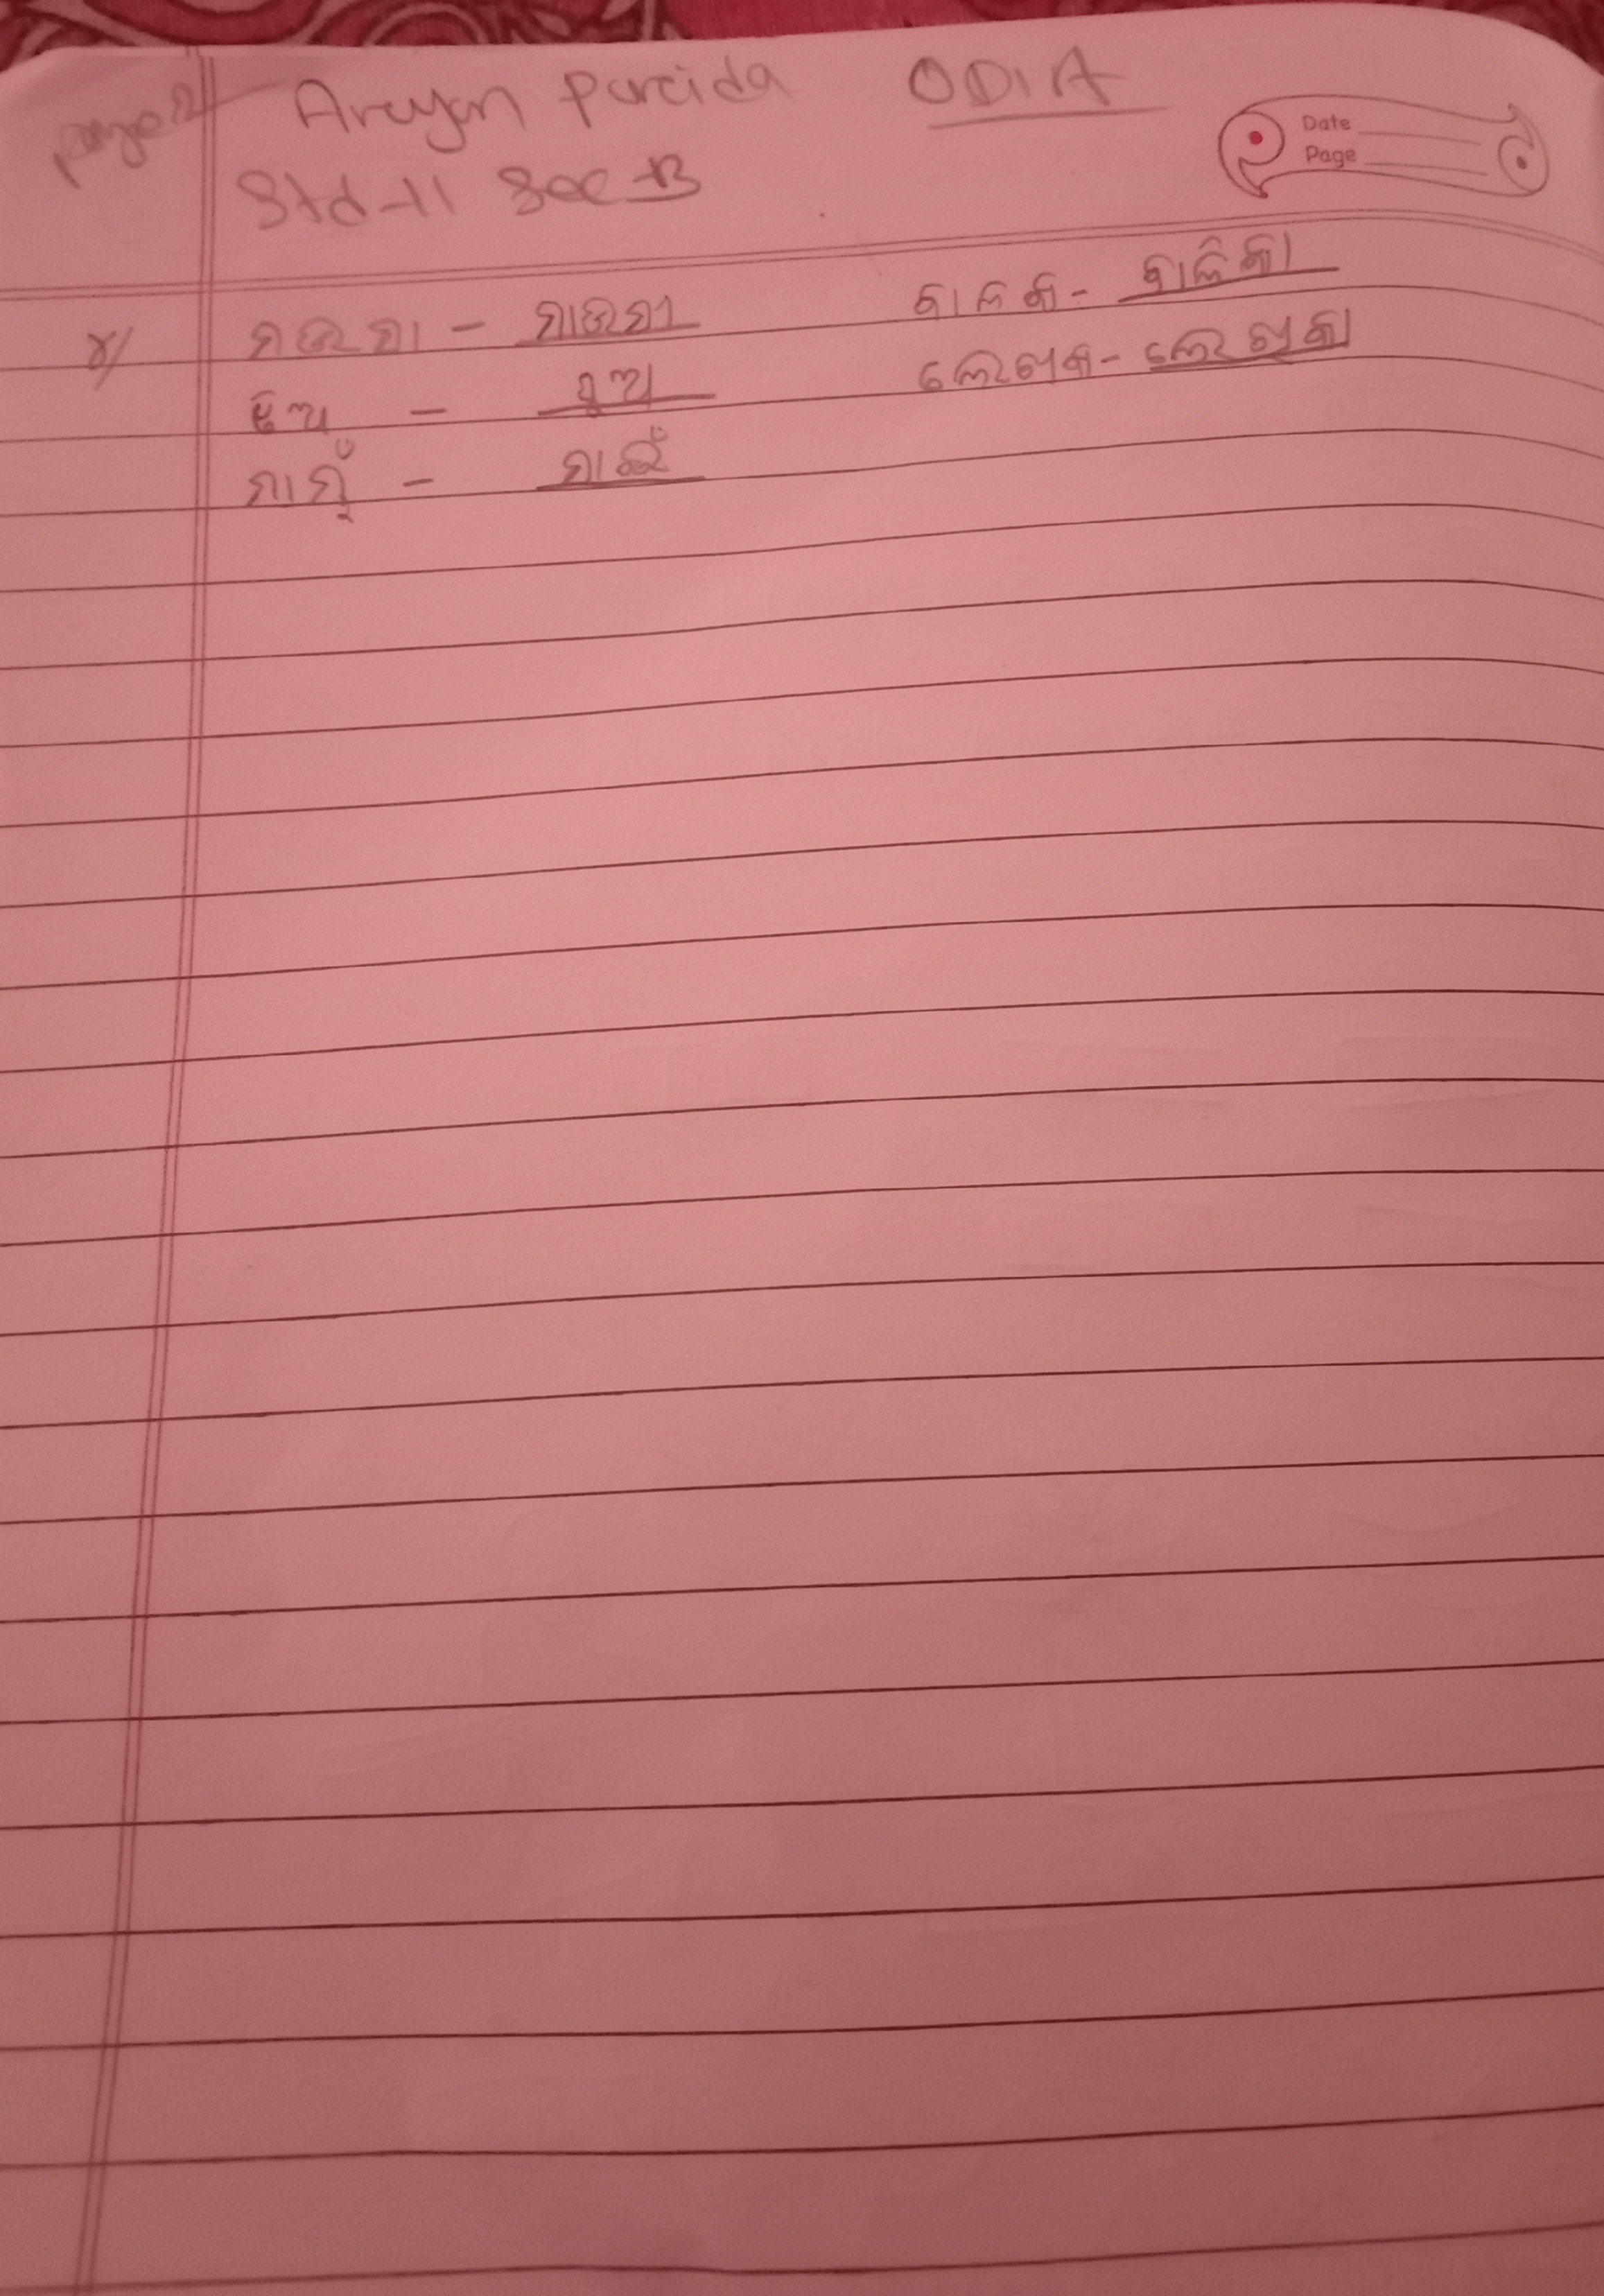 page 2 Aryan Parida ODIA
Date
Page
Std-II Sec-B
୪/ ମଉସା - ମାଉସୀ ବାଳକ - ବାଳିକା
ଝିଅ - ପୁଅ ଲେଖକ - ଲେଖିକା
ମାମୁଁ - ମାଇଁ